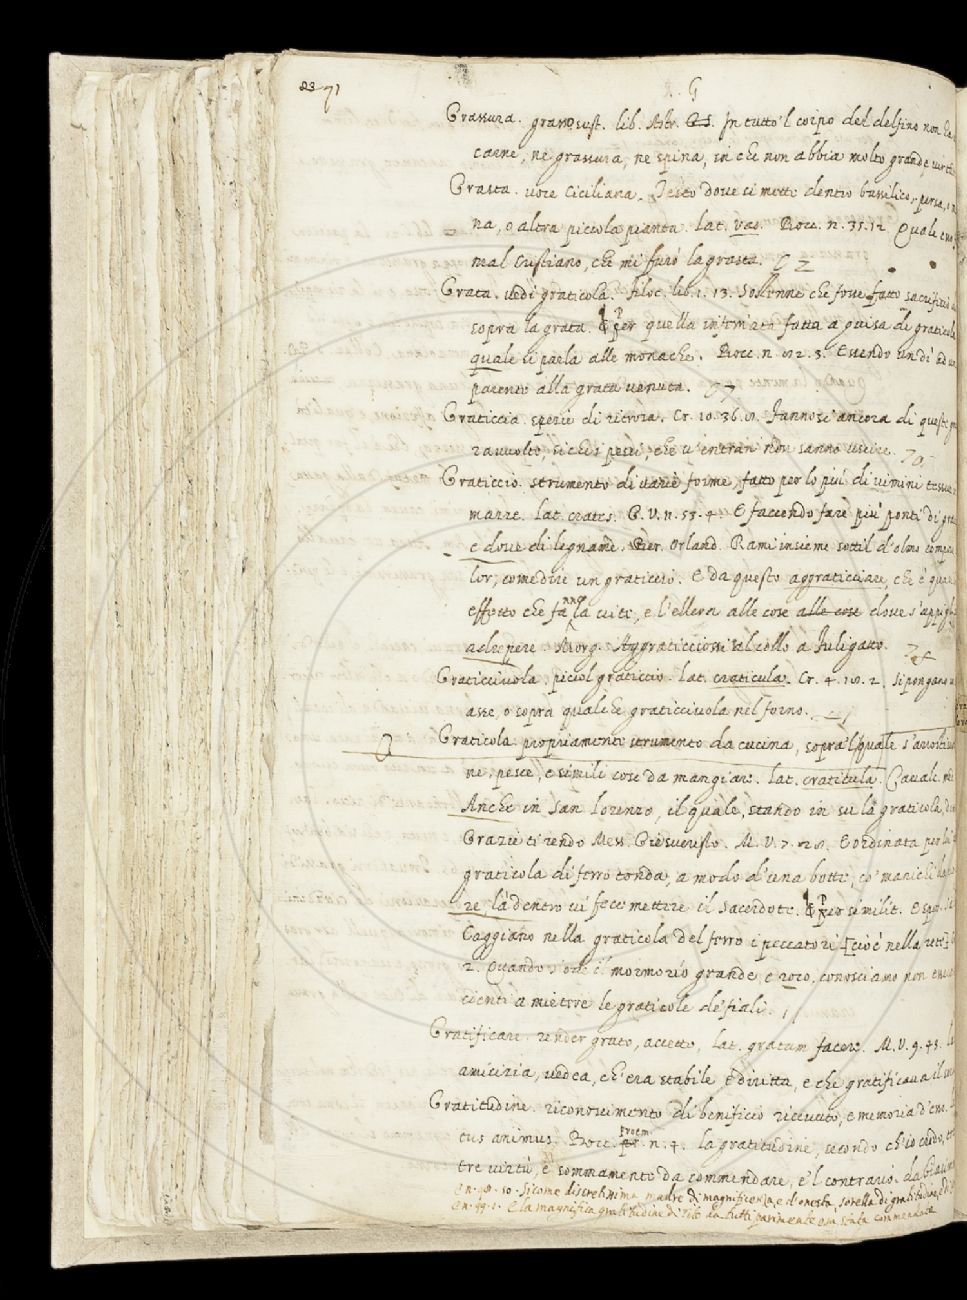 83 71
G
Grassura. grasso sust. lib. Astr. In tutto 'l corpo del delfino non ha
carne, ne grassura, ne spina, in che non abbia molto grande virtù
Grasta. voce Ciciliana. Testo dove si mette dentro bassilico, persa,
na, o altra piccola pianta. lat. vas. Bocc. n. 35. 12. Quale
mal Cristiano, che mi furò la grasta.
Grata. vedi graticola. filoc. lib. 1. 13. Sollenne che fosse fatto sacrificio
sopra la grata. per quella inferriata fatta a guisa di graticola
quale si parla alle monache. Bocc. n. 2. 3. Essendo un dì ad un
parente alla grata venuta.
Graticcia. spezie di ritrosa. Cr. 10. 36. Fannosi ancora di queste
ravvolto, sì che i pesci, che v' entran non sanno uscire.
Graticcio. strumento di varie forme, fatto per lo più di vimini tessu
mazze. lat. crates. G. V. n. 53. 4. E faccendo fare più ponti di gra
e dove di legname. Bier. Orland. Rami insieme sottil d' olmo
lor, come dire un graticcio. E da questo aggraticciare, che è quel
effetto che fanno la vite, e l' ellera alle cose alle cose dove s' appigl
adrepere. Morg. Aggraticciossi al collo a Fuligatto.
Graticciuola. picciol graticcio. lat. craticula. Cr. 4. 2. Si pongano
asse, o sopra qualche graticciuola nel forno.
Graticola propriamente strumento da cucina, sopra 'l quale s' arrostis
ne, pesce, e simili cose da mangiare. lat. craticula. Cavalc.
Anche in San Lorenzo, il quale, stando in su la graticola,
Grazie ti rendo Mess. Giesucristo. M. V. 7. E ordinata per lui
graticola di ferro tonda, a modo d' una botte, co' manichi
re, là dentro vi fece mettere il sacerdote. per similit.
Caggiano nella graticola del ferro i peccatori [cioè nella rete]
2. Quando s' ode il mormorio grande, e roco, conosciamo non
dienti a mietere le graticole de' fiali.
Gratificare. render grato, accetto, lat. gratum facere. M. V. 9. 43.
amicizia, vedea, ch' era stabile e diritta, e che gratificava il
Gratitudine. riconoscimento di benificio ricevuto, e memoria d' esso.
tus animus. Bocc. proem. n. 4. la gratitudine, secondo ch' io credo,
tre virtù è sommamente da commendare, e 'l contrario da biasim
E n. 98. 50. Sicome discretissima madre di magnificenza, e d' onestà, sorella di gratitudine
E n. 99. 1. E la magnifica gratitudine di Tito da tutti parimente era stata commendata